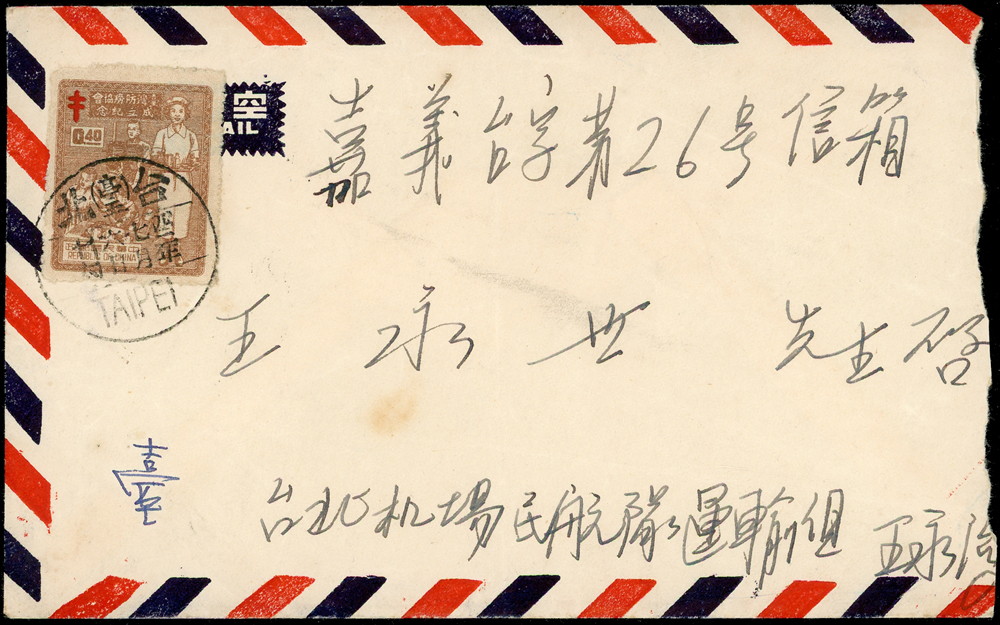 防癆協會
成立紀念
0.40
REPUBLIC OF CHINA
空
AIL
北(臺)台
TAIPEI
嘉義台字第26号信箱
王永世先生啓
臺
台北机場民航隊運輸组 王永